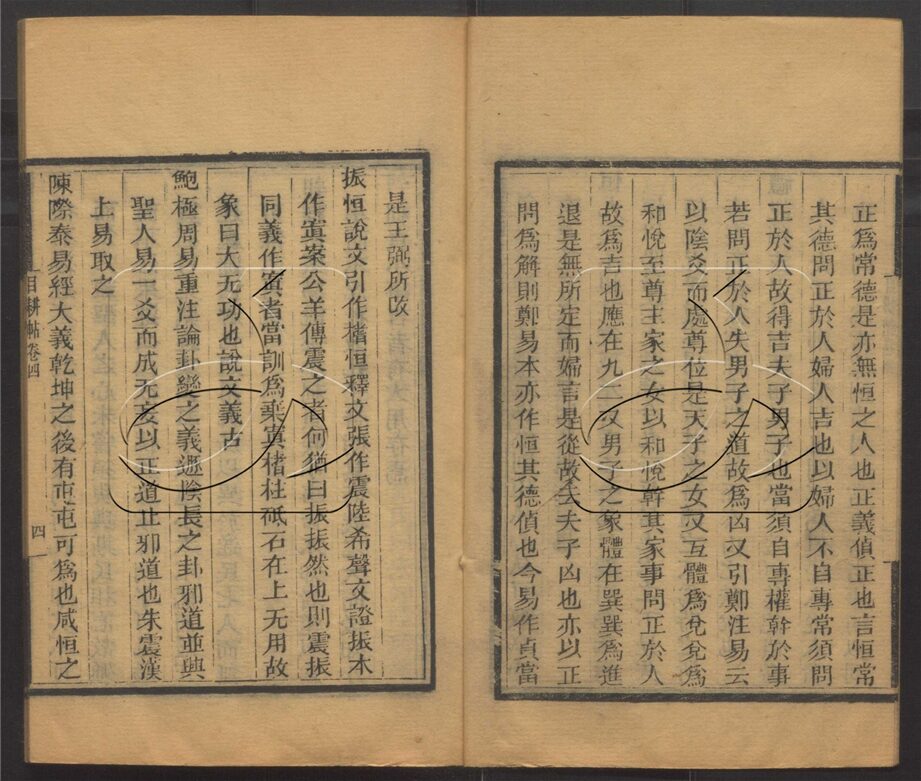 正為常德是亦無恒之人也正義偵正也言恒常
其德問正於人婦人吉也以婦人不自專常須問
正於人故得吉夫子男子也當須自專權幹於事
若問正於人失男子之道故為凶又引鄭注易云
以陰爻而處尊位是天子之女又互體為兌兌為
和悅至尊王家之女以和悅幹其家事問正於人
故為吉也應在九二又男子之象體在巽巽為進
退是無所定而婦言是從故云夫子凶也亦以正
問為解則鄭易本亦作恒其德偵也今易作貞當
是王弼所改
振恒說文引作榰恒釋文張作震陸希聲文證振本
作寘案公羊傳震之者何猶曰振振然也則震振
同義作寘者當訓為棄寘榰柱砥石在上无用故
象曰大无功也說文義古
鮑極周易重注論卦變之義遯陰長之卦邪道並興
聖人易一爻而成无妄以正道止邪道也朱震漢
上易取之
陳際泰易經大義乾坤之後有屯屯可為也咸恒之
目耕帖卷四
四